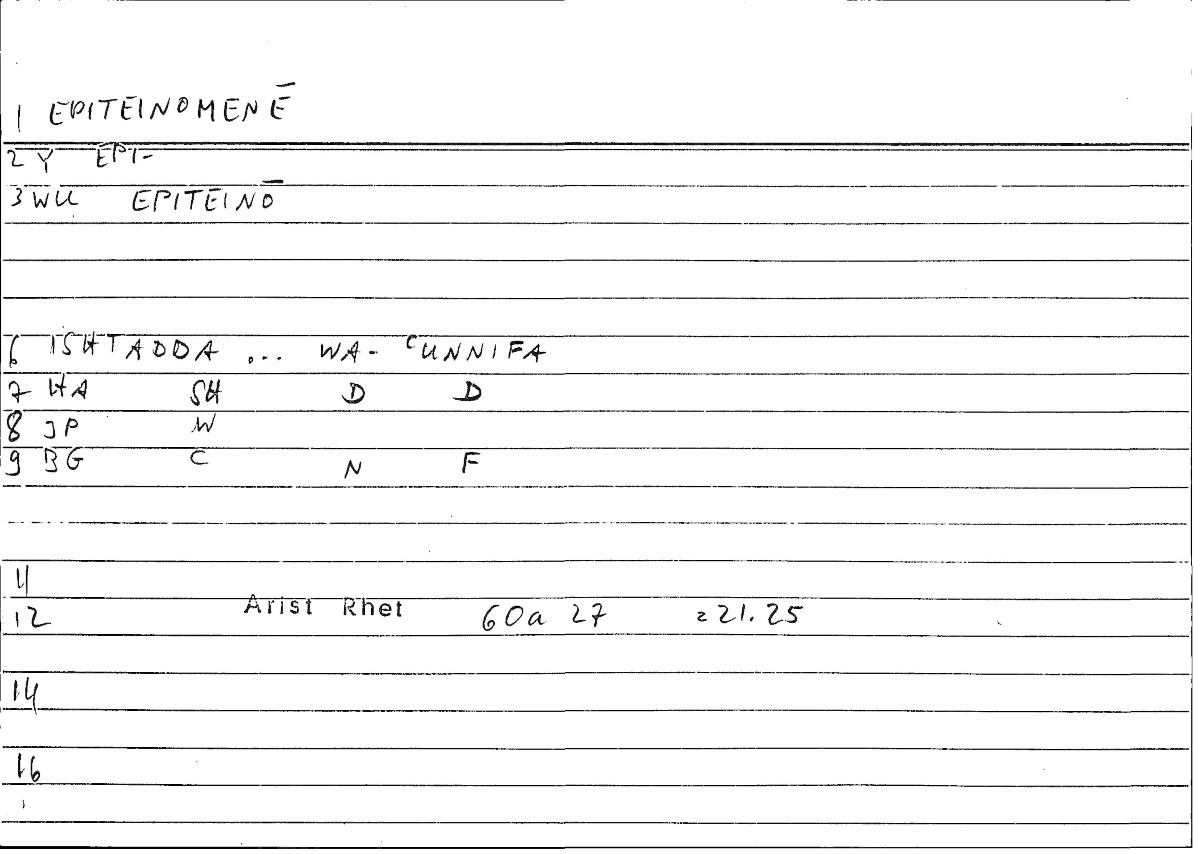 1 EPITEINOMENĒ
2 Y EPI-
3 WU EPITEINŌ
6 ISHTADDA ... WA- ʿUNNIFA
7 HA SH D D
8 JP W
9 BG C N F
11
12 Arist Rhet 60a 27 =21.25
14
16